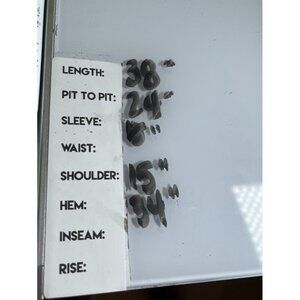 LENGTH: 38"
PIT TO PIT: 24"
SLEEVE:
WAIST:
SHOULDER: 15"
HEM: 34"
INSEAM:
RISE: